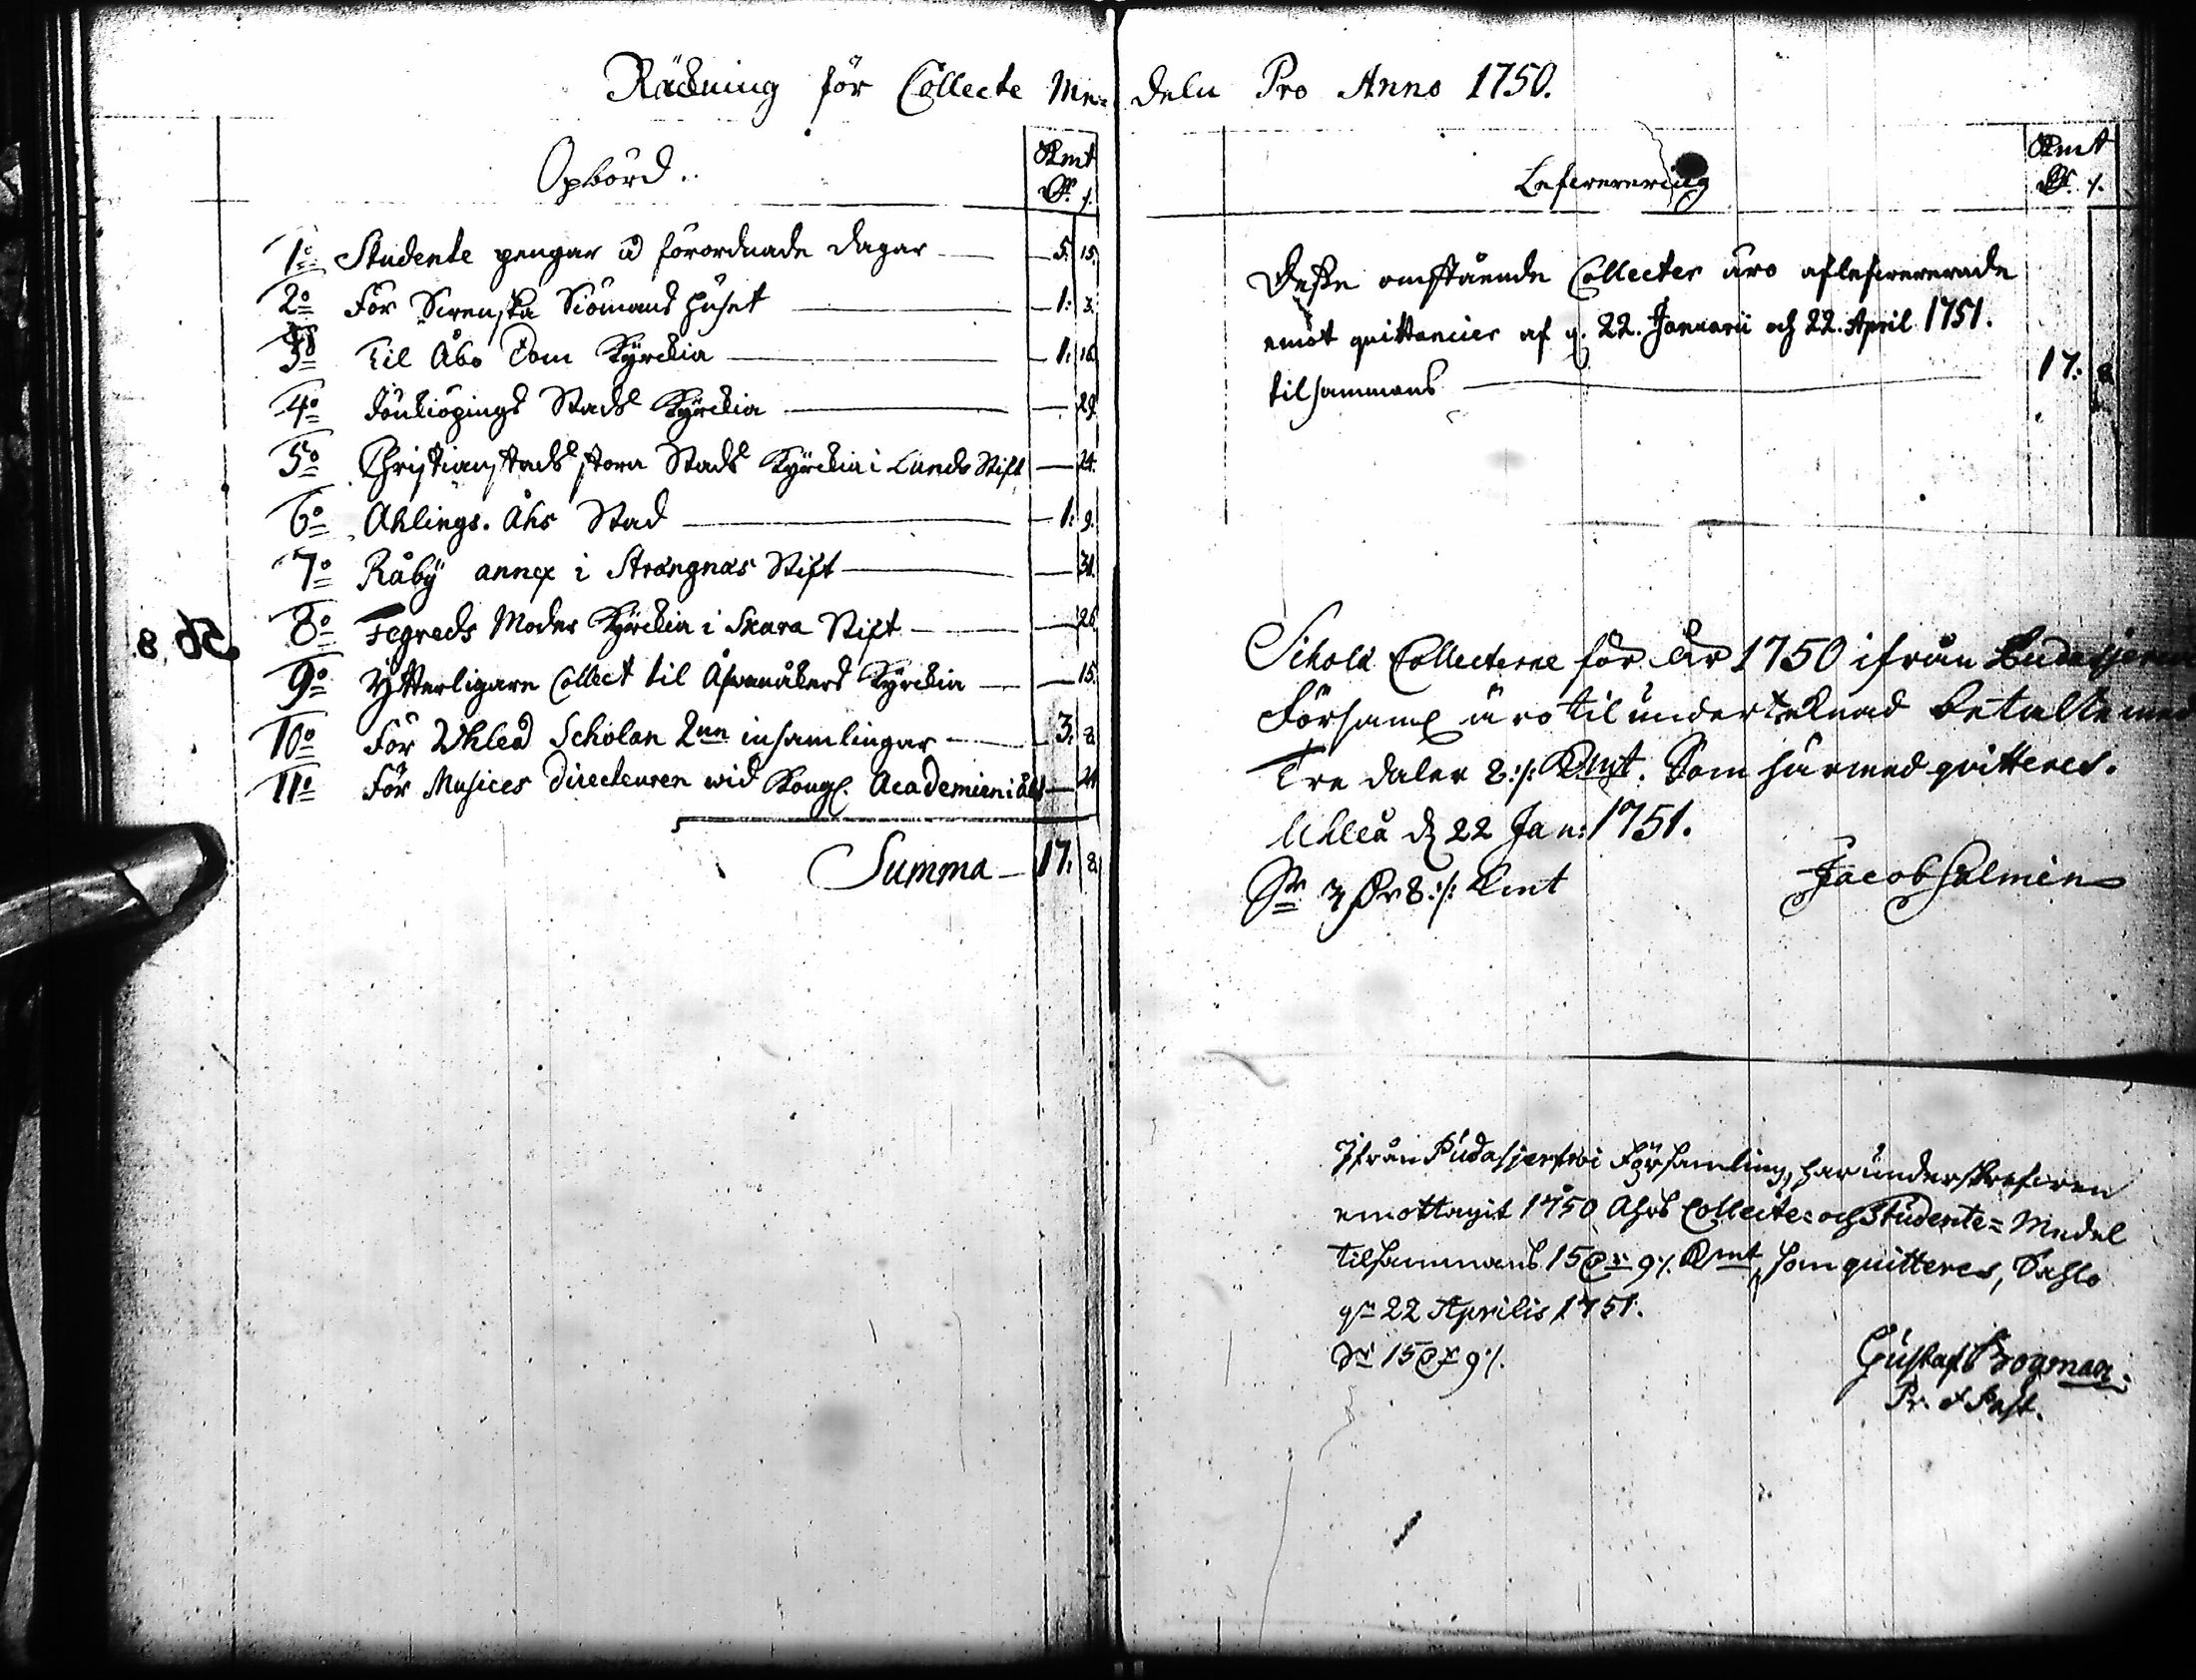 Räckning för Collecte Me=deln Pro Anno 1750.
Opbörd.
Kmt
Dr. /.
1o Studente pengar å förordnade dagar 5. 15.
2o För Swenska Siömans huset 1: 3.
3o Til Åbo Dom Kyrckia 1: 16
4o Jönkiöpings Stads Kyrckia 29
5o Christianstads stora Stads Kyrckia i Lunds Stift 24.
6o Ahlings-Åhs Stad 1: 9.
7o Råby annex i Strengnäs Stift 31.
8o Fegreds Moder Kyrckia i Skara Stift 26
9o Ytterligare Collect til Åswanåkers Kyrckia 15.
10o För Uhleå Scholan 2ne insamlingar 3. 8.
11o För Musices Directeuren wid Kongl. Academien i Åbo 24
Summa 17. 8.
Lefwerering
Kmt
Dr. /.
Desse omstående Collecter äro aflefwererade
emot quittancier af d. 22. Januarii och 22. April 1751.
tilsammans 17: 8
Schola Collecterne för år 1750 ifrån Pudasjerwi
Församl äro til undertecknad betalte med
Tre daler 8:/: Kmt. Som härmed qvitteres.
Uhleå d 22 Jan: 1751.
Sr 3 Dr 8:/: Kmt
Jacob Salmen
Ifrån Pudasjerfwi Församling, har underskrefwen
emottagit 1750 Ahrs Collecte= och Studente= Medel
tilsammans 15 Dr 9 /. Kmt, som quitteres, Sahlo
den 22 Aprilis 1751.
Sr 15 Dr 9 /.
Gustaf Bogman.
Pr. & Past.